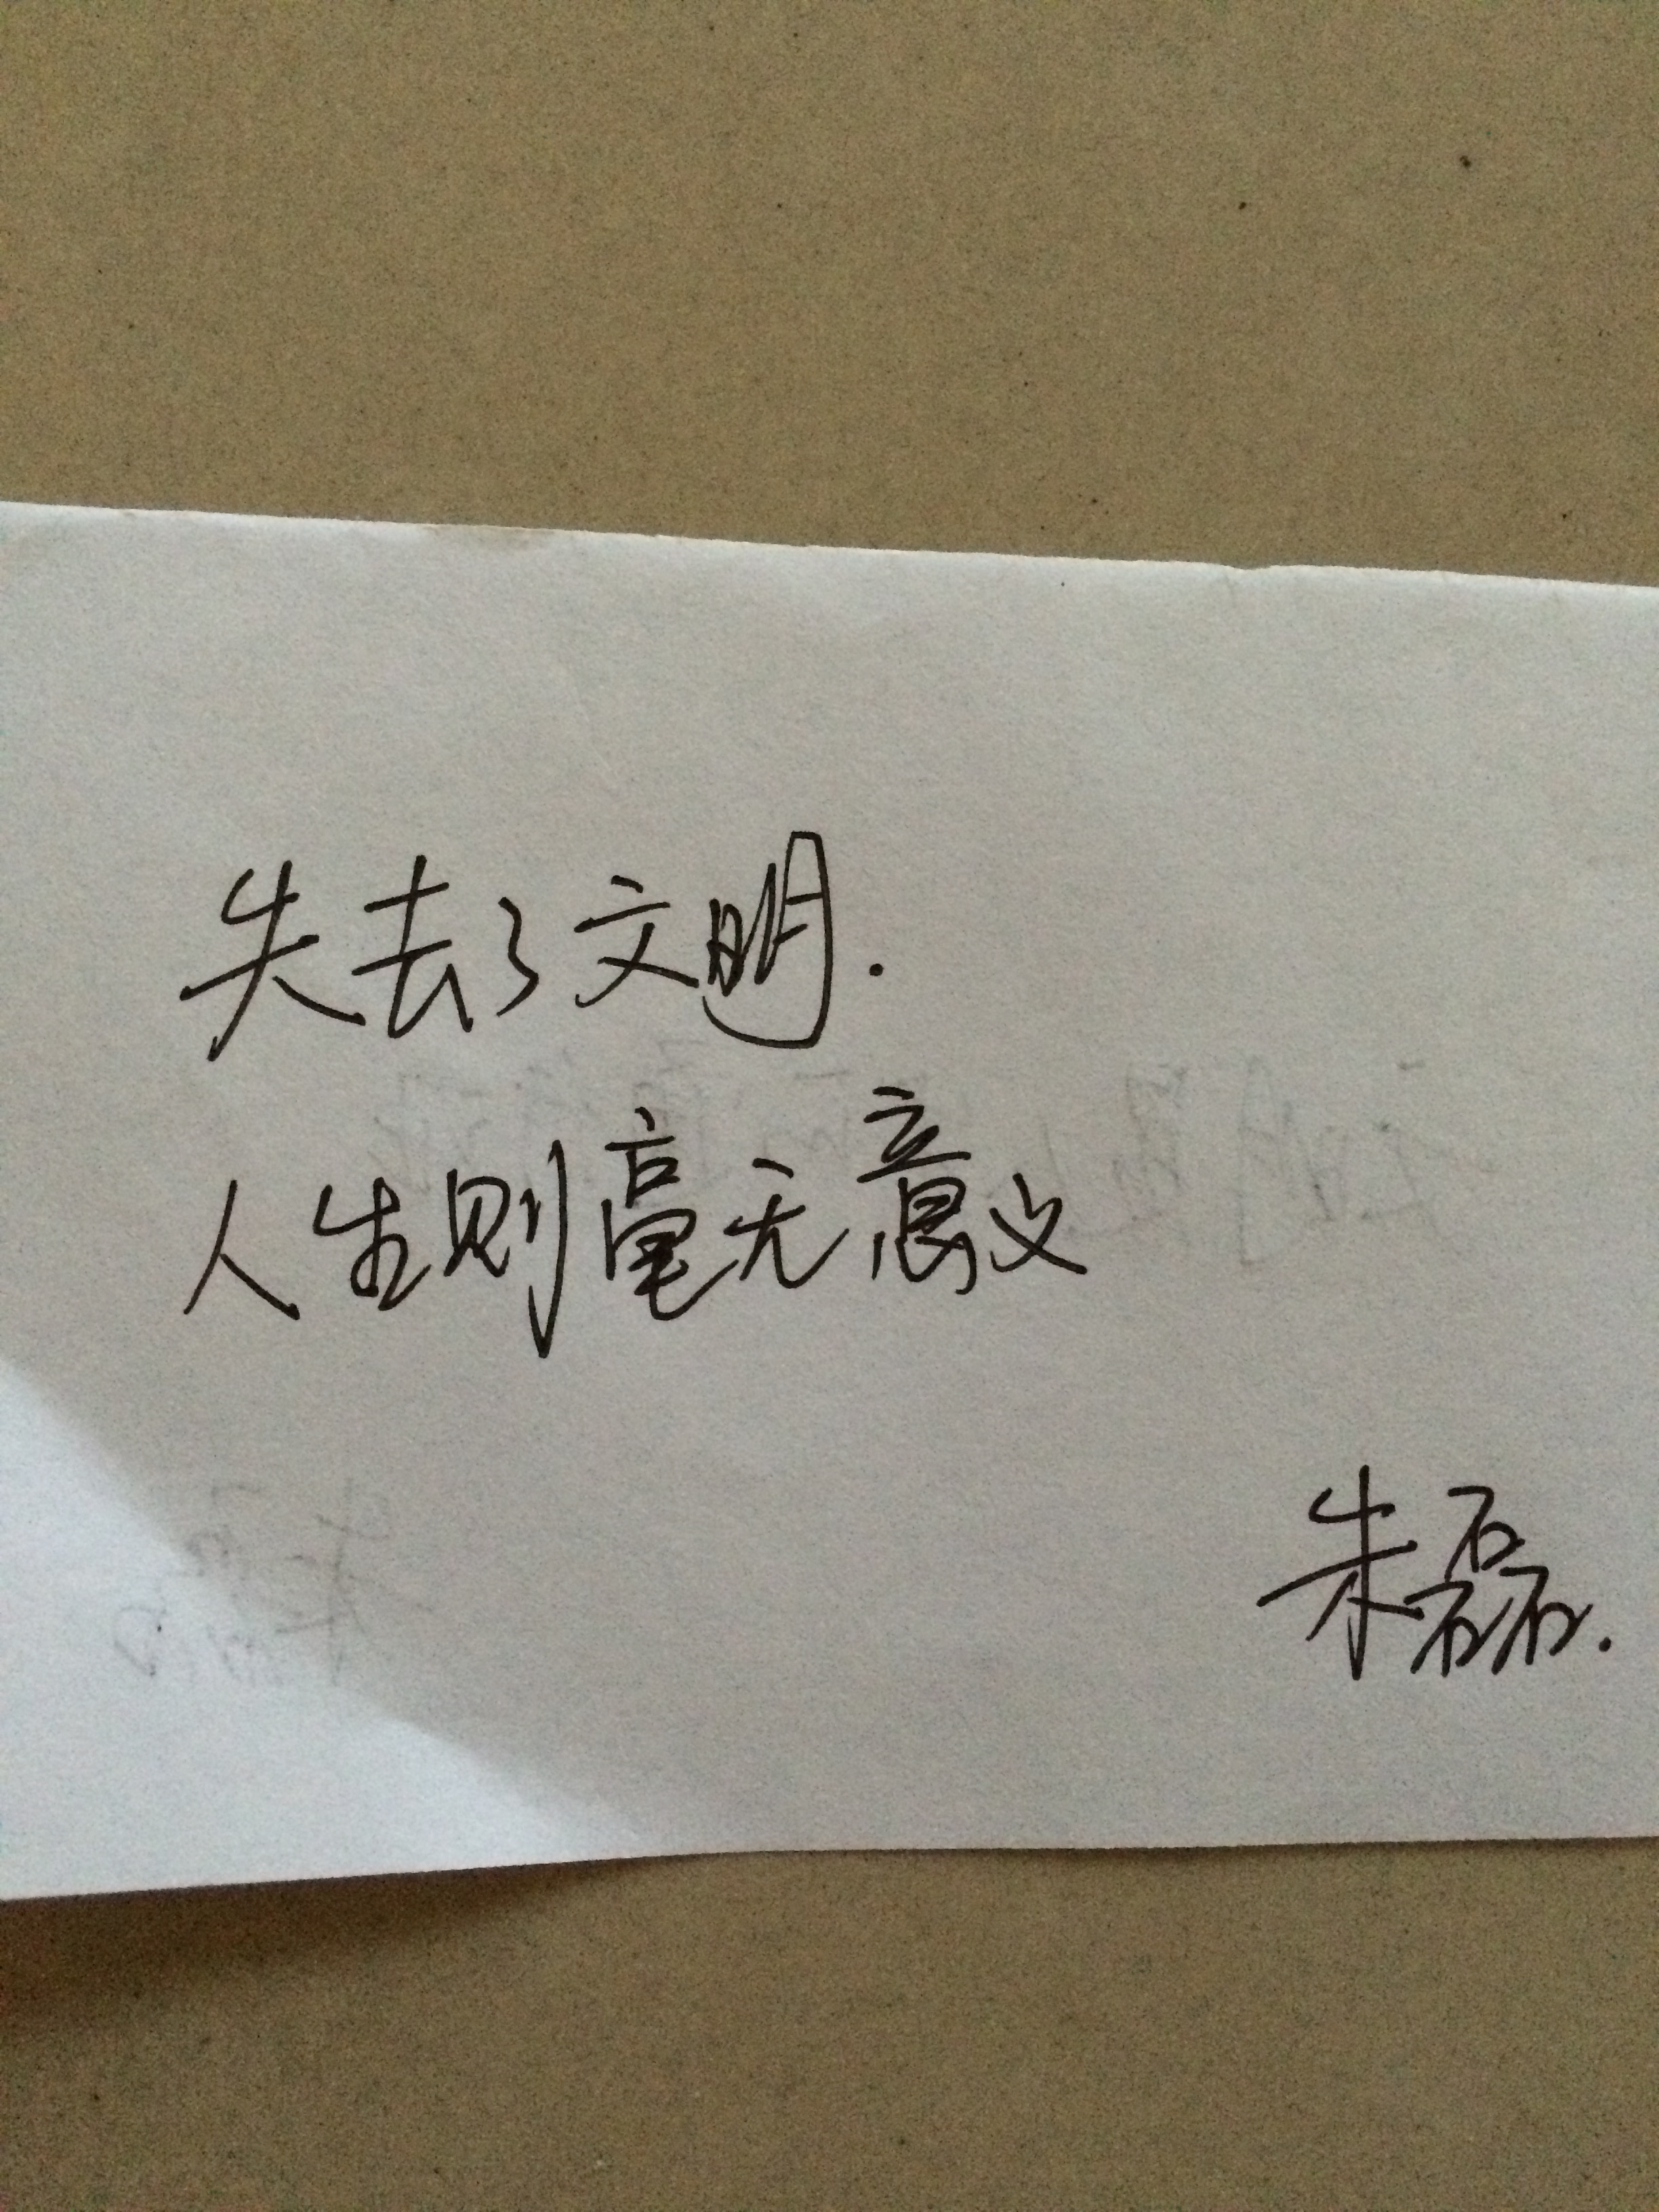 失去了文明.
人生则毫无意义
朱磊.